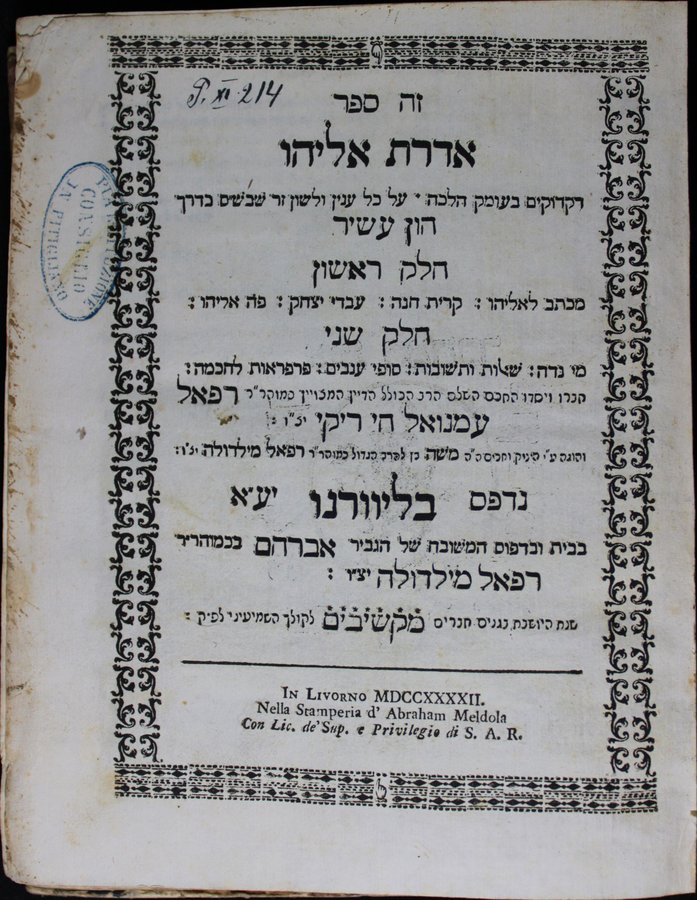 P. XI. 214
זה ספר
אדרת אליהו
דקדוקים בעומק הלכה · על כל ענין ולשון זר שבשים בדרך
הון עשיר
חלק ראשון
מכתב לאליהו : קרית חנה : עבדי יצחק : פה אליהו :
חלק שני
מי נדה : שאלות ותשובות : סופי ענבים : פרפראות לחכמה :
חברו ויסדו החכם השלם הרב הכולל הדיין המצויין כמוהר״ר רפאל
עמנואל חי ריקי יצ״ו :
והוגה ע״י היניק וחכים ה״ה משה בן להרב הגדול כמוהר״ר רפאל מילדולה יצ״ו :
נדפס בליוורנו יע״א
בבית ובדפוס המשובח של הגביר אברהם בכמוהר״ר
רפאל מילדולה יצ״ו :
שנת היושבת בגנים חברים מקשיבים לקולך השמיעיני לפ״ק :
IN LIVORNO MDCCXXXXII.
Nella Stamperia d' Abraham Meldola
Con Lic. de' Sup. e Privilegio di S. A. R.
PIA ISTITUZIONE
CONSIGLIO
IN PITIGLIANO